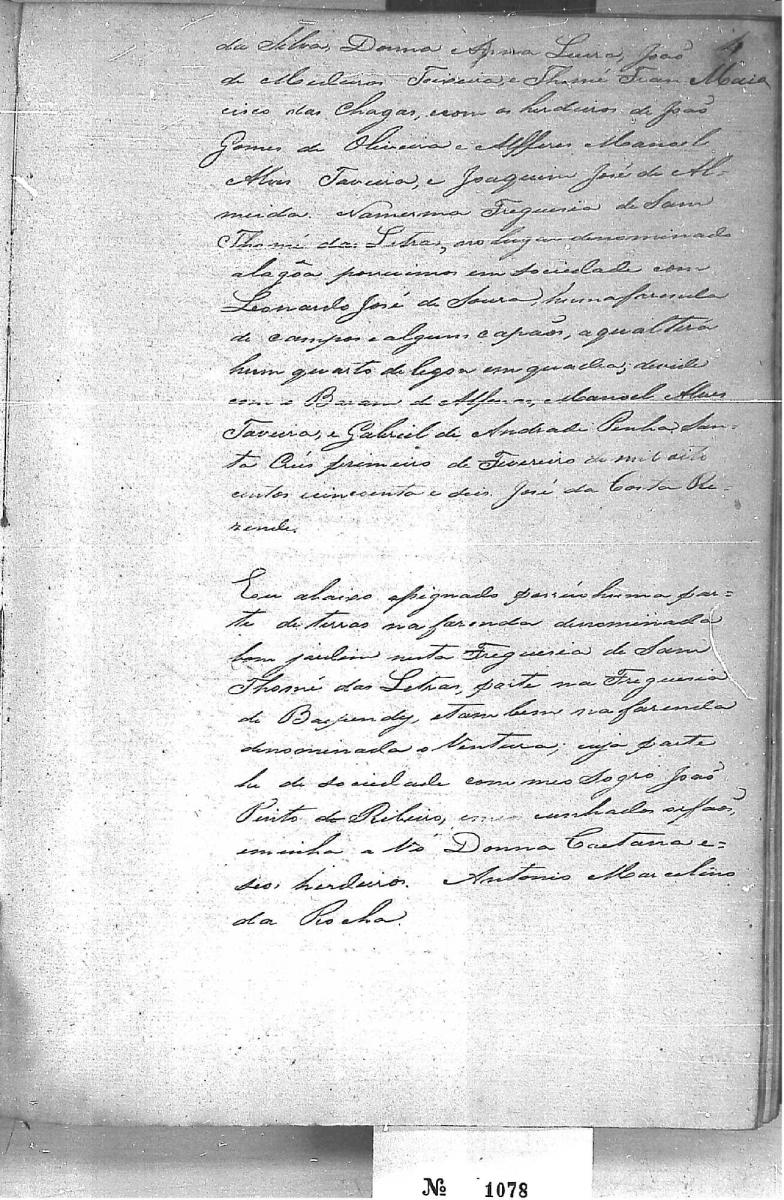 da Silva, Donna Anna Luisa, João
de Medeiros Teixeira, e Thomé Fran
4
Maia
cisco das Chagas, e com os herdeiros de João
Gomes de Oliveira e Alfferes Manoel
Alves Taveira, e Joaquim José de Al-
meida. Na mesma Freguesia de Sam
Thomé das Letras, no lugar denominado
alagôa possuimos em sociedade com
Leonardo José de Sousa, huma fasenda
de campos e alguns capãos, a qual terá
hum quarto de legoa em quadra; devide
com o Baram de Alfenas, Manoel Alves
Taveira, e Gabriel de Andrade Penha, San-
ta Crús primeiro de Fevereiro de mil oito
centos cincoenta e seis. José da Costa Re-
zende.
Eu abaixo assignado possúo huma par-
te de terras na fazenda denominada
bom jardim nesta Freguesia de Sam
Thomé das Letras, parte na Freguesia
de Baependy, e tambem na fazenda
denominada o Ventura; cuja parte
he de sociedade com meo Sogro João
Pinto de Ribeiro, e meos cunhados orfãos,
e minha a Vó Donna Caetana e-
seos herdeiros. Antonio Marcelino
da Rocha.
Nº 1078